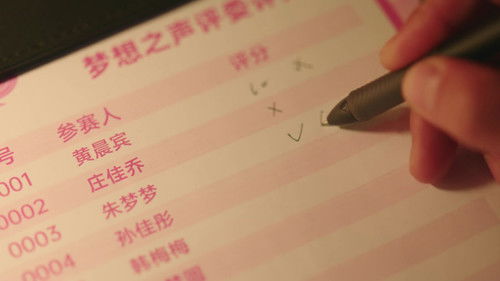 梦想之声评委评
号 参赛人 评分
0001 黄晨宾
0002 庄佳乔 x
0003 朱梦梦 v
0004 孙佳彤
韩梅梅